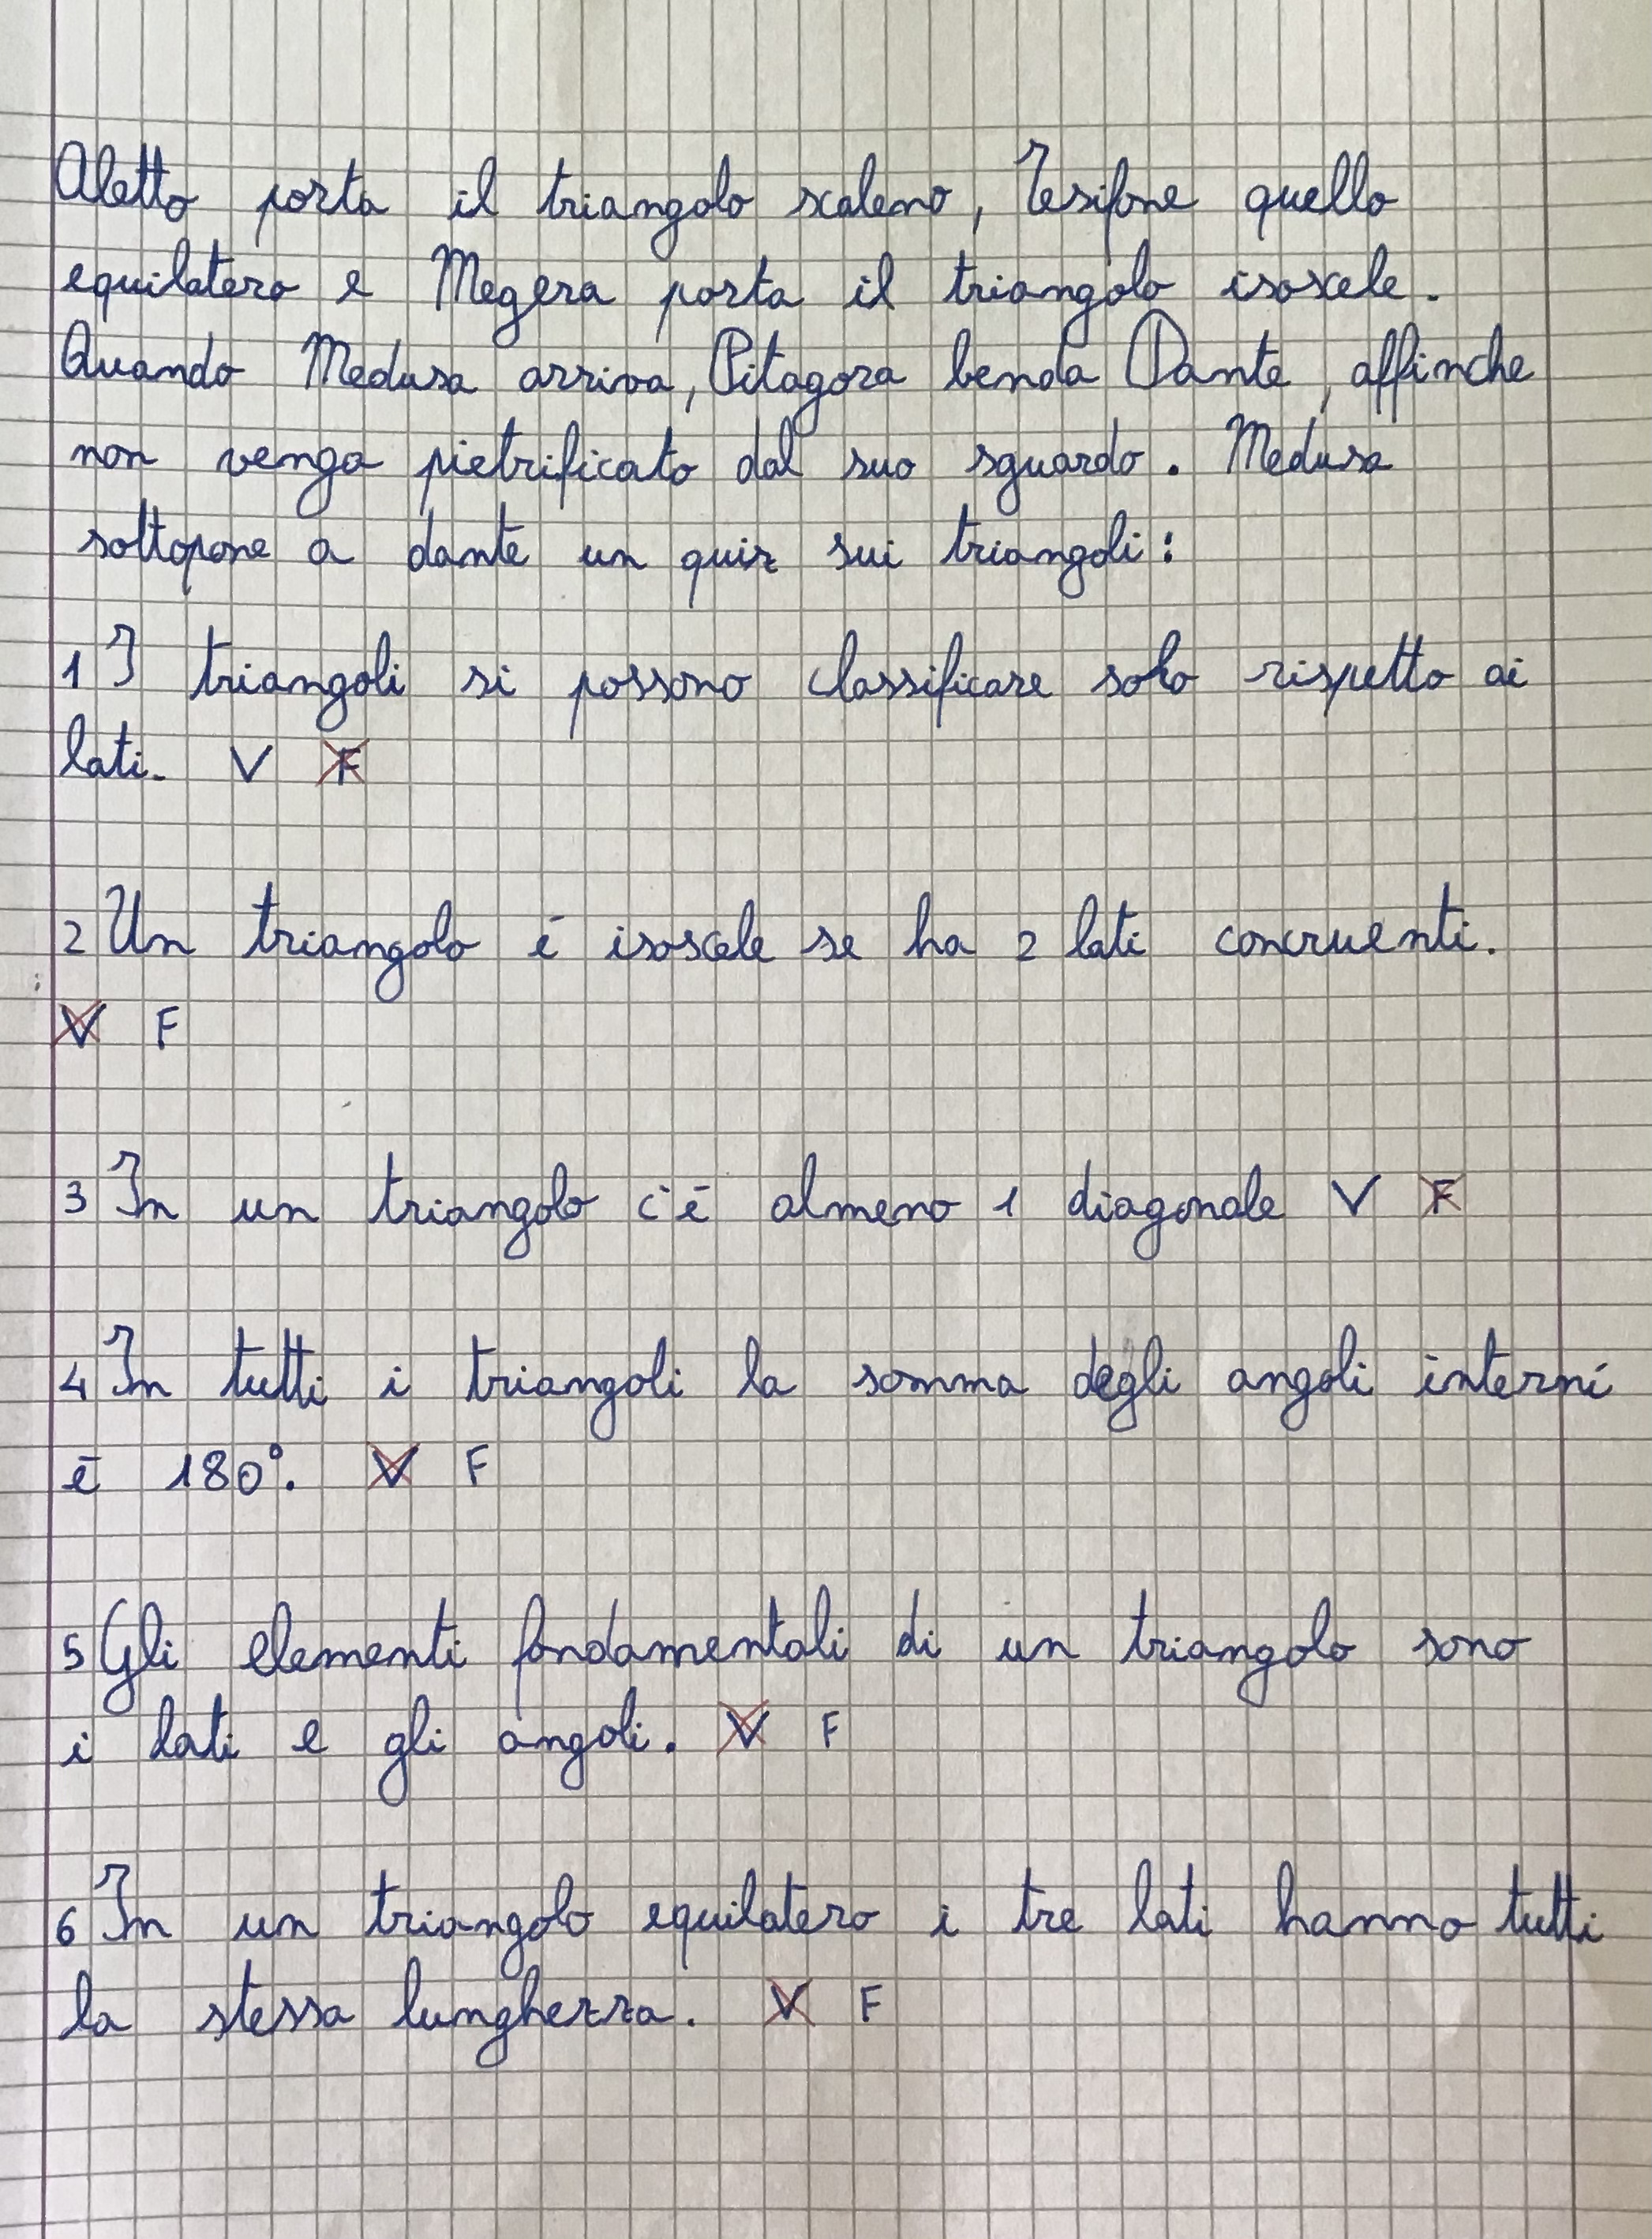 Aletto porta il triangolo scaleno, Tesifone quello
equilatero e Megera porta il triangolo isoscele.
Quando Medusa arriva, Pitagora benda Dante, affinche
non venga pietrificato dal suo sguardo. Medusa
sottopone a dante un quiz sui triangoli:
1 I triangoli si possono classificare solo rispetto ai
lati. V F
2 Un triangolo è isoscele se ha 2 lati concruenti.
V F
3 In un triangolo c'è almeno 1 diagonale V F
4 In tutti i triangoli la somma degli angoli interni
è 180°. V F
5 Gli elementi fondamentali di un triangolo sono
i lati e gli angoli. V F
6 In un triangolo equilatero i tre lati hanno tutti
la stessa lunghezza. V F